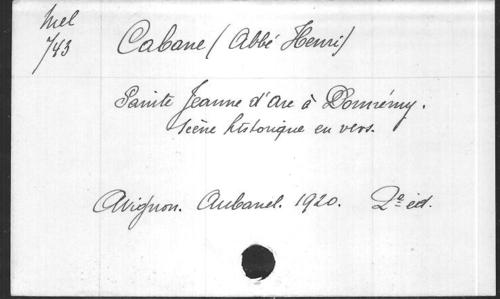 Mel
743
Cabane (Abbé Henri)
Sainte Jeanne d'Arc à Domrémy.
Scène historique en vers.
Avignon. Aubanel. 1920. 2e éd.